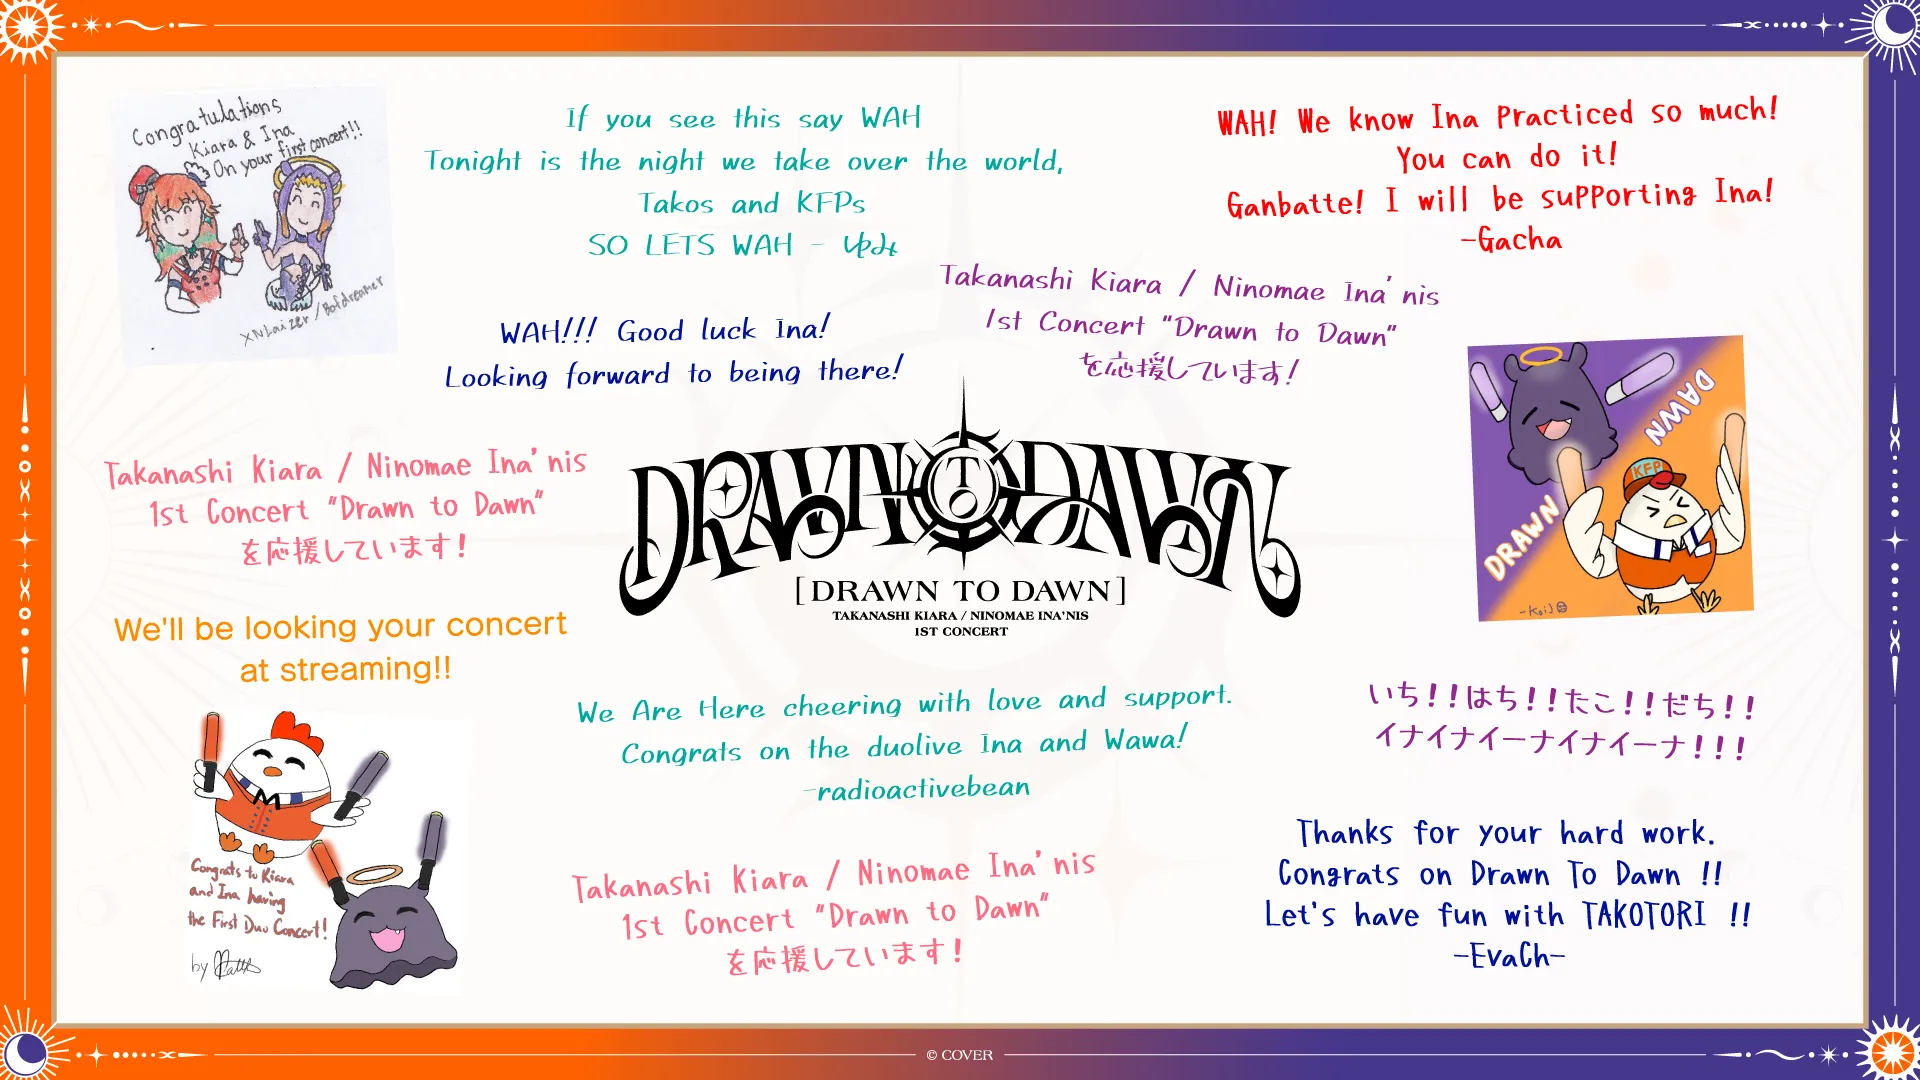 Congratulations
Kiara & Ina
On your first concert!!
XNLaizer / Bofdreamer
If you see this say WAH
Tonight is the night we take over the world,
Takos and KFPs
SO LETS WAH - ゆみ
WAH! We know Ina Practiced so much!
You can do it!
Ganbatte! I will be supporting Ina!
-Gacha
Takanashi Kiara / Ninomae Ina'nis
1st Concert "Drawn to Dawn"
を応援しています!
WAH!!! Good luck Ina!
Looking forward to being there!
Takanashi Kiara / Ninomae Ina'nis
1st Concert "Drawn to Dawn"
を応援しています!
DRAWN TO DAWN
[DRAWN TO DAWN]
TAKANASHI KIARA / NINOMAE INA'NIS
1ST CONCERT
DAWN
KFP
DRAWN
-Koi)
We'll be looking your concert
at streaming!!
We Are Here cheering with love and support.
Congrats on the duolive Ina and Wawa!
-radioactivebean
いち!!はち!!たこ!!だち!!
イナイナイーナイナイーナ!!!
Congrats to Kiara
and Ina having
the First Duo Concert!
by
Takanashi Kiara / Ninomae Ina'nis
1st Concert "Drawn to Dawn"
を応援しています!
Thanks for your hard work.
Congrats on Drawn To Dawn !!
Let's have fun with TAKOTORI !!
-EvaCh-
© COVER